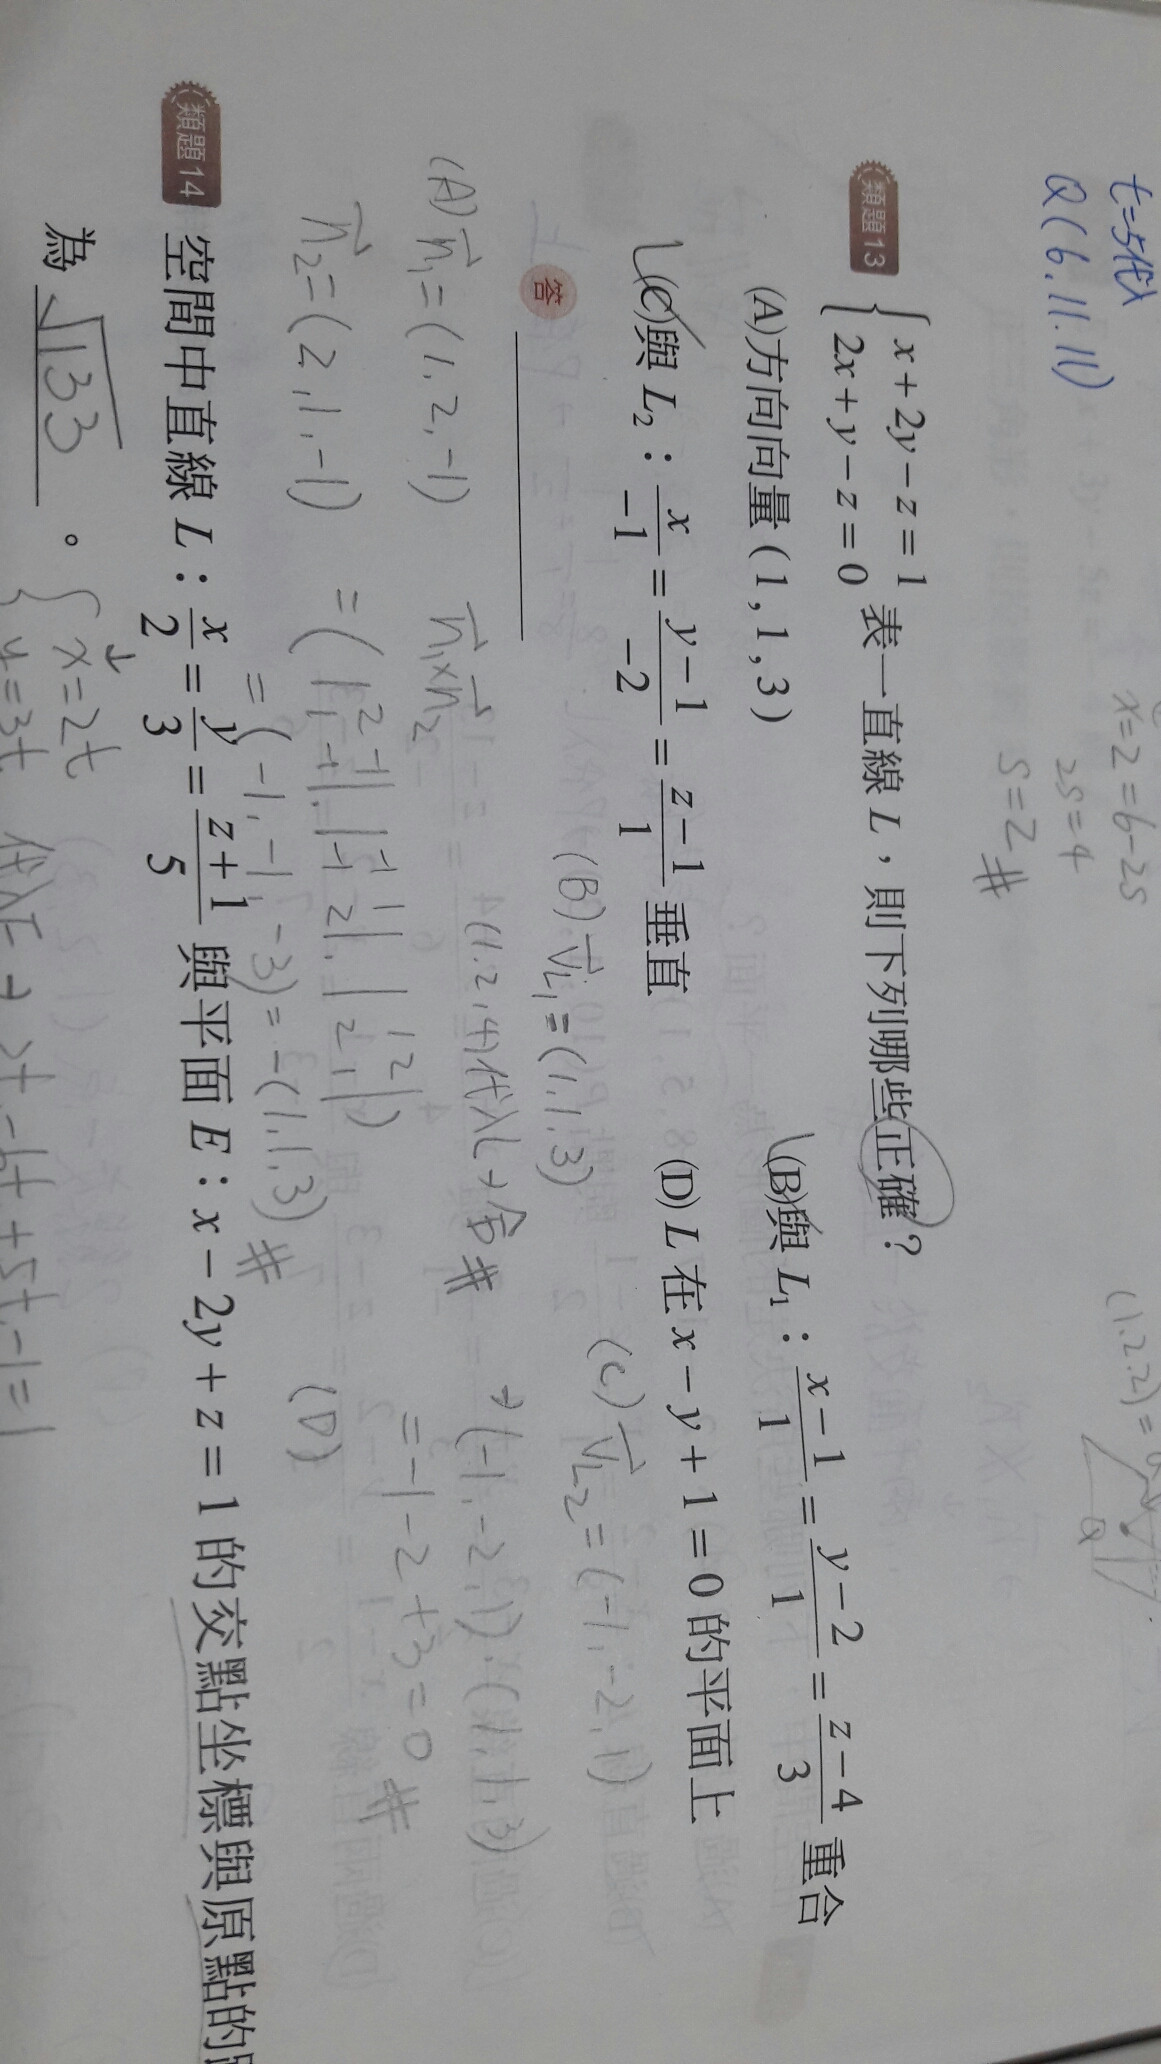 t=5代入
Q(6.11.11)
x=2=6-2s
2s=4
s=2 #
(1.2.2)=
Q
類題13 { x+2y-z=1 2x+y-z=0 表一直線 L，則下列哪些正確？
(A)方向向量 (1, 1, 3) (B)與 L₁：(x-1)/1=(y-2)/1=(z-4)/3 重合
(C)與 L₂：x/-1=(y-1)/-2=(z-1)/1 垂直 (D) L 在 x-y+1=0 的平面上
答
(A) n₁=(1.2,-1)
n₂=(2,1,-1)
n₁×n₂
=(|2 -1 1 -1|.|-1 1 -1 2|.|1 2 2 1|)
=(-1,-1,-3)=-(1.1.3) #
(B) v_L₁=(1.1.3)
(1.2.4)代入L→合 #
(C) v_L₂=(-1,-2,1)
→(-1,-2,1)·(1,1,3)
=-1-2+3=0 #
(D)
類題14 空間中直線 L：x/2=y/3=(z+1)/5 與平面 E：x-2y+z=1 的交點坐標與原點的
為 √133 。
{ x=2t
y=3t 代入E→2t-6t+5t-1=1